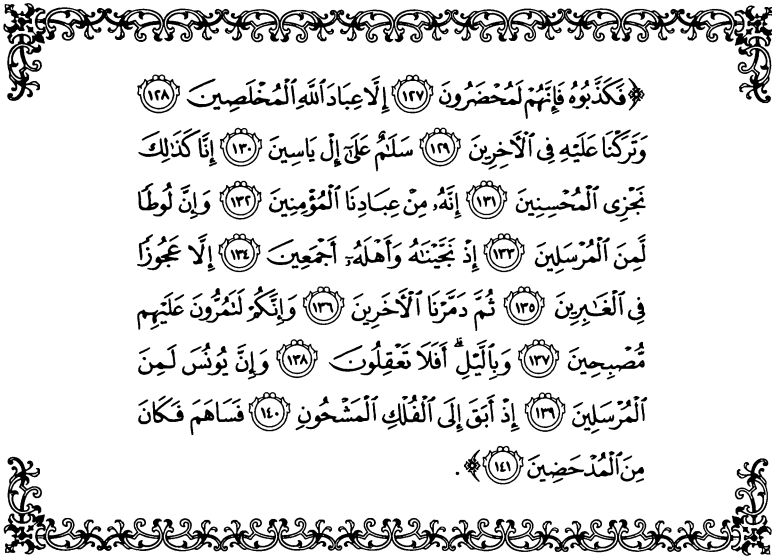 ﴿فَكَذَّبُوهُ فَإِنَّهُمْ لَمُحْضَرُونَ ١٢٧ إِلَّا عِبَادَ ٱللَّهِ ٱلْمُخْلَصِينَ ١٢٨
وَتَرَكْنَا عَلَيْهِ فِى ٱلْءَاخِرِينَ ١٢٩ سَلَٰمٌ عَلَىٰٓ إِلْ يَاسِينَ ١٣٠ إِنَّا كَذَٰلِكَ
نَجْزِى ٱلْمُحْسِنِينَ ١٣١ إِنَّهُۥ مِنْ عِبَادِنَا ٱلْمُؤْمِنِينَ ١٣٢ وَإِنَّ لُوطًا
لَّمِنَ ٱلْمُرْسَلِينَ ١٣٣ إِذْ نَجَّيْنَٰهُ وَأَهْلَهُۥٓ أَجْمَعِينَ ١٣٤ إِلَّا عَجُوزًا
فِى ٱلْغَٰبِرِينَ ١٣٥ ثُمَّ دَمَّرْنَا ٱلْءَاخَرِينَ ١٣٦ وَإِنَّكُمْ لَتَمُرُّونَ عَلَيْهِم
مُّصْبِحِينَ ١٣٧ وَبِٱلَّيْلِ ۗ أَفَلَا تَعْقِلُونَ ١٣٨ وَإِنَّ يُونُسَ لَمِنَ
ٱلْمُرْسَلِينَ ١٣٩ إِذْ أَبَقَ إِلَى ٱلْفُلْكِ ٱلْمَشْحُونِ ١٤٠ فَسَاهَمَ فَكَانَ
مِنَ ٱلْمُدْحَضِينَ ١٤١﴾ .